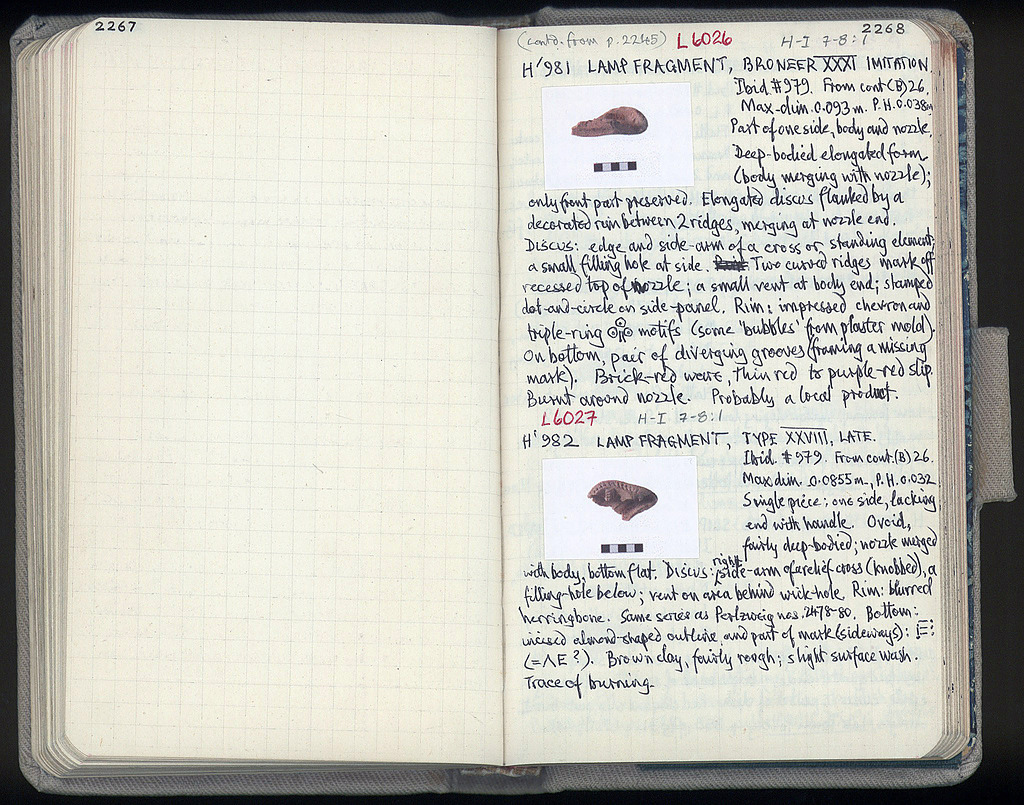 2267
2268
(contd. from p. 2245) L6026 H-I 7-8:1
H'981 LAMP FRAGMENT, BRONEER XXXI IMITATION.
Ibid. #979. From cont.(B) 26.
Max. dim. 0.093 m. P.H. 0.038m
Part of one side, body and nozzle.
Deep-bodied elongated form
(body merging with nozzle);
only front part preserved. Elongated discus flanked by a
decorated rim between 2 ridges, merging at nozzle end.
Discus: edge and side-arm of a cross or standing element;
a small filling hole at side. Two curved ridges mark off
recessed top of nozzle; a small vent at body end; stamped
dot-and-circle on side-panel. Rim: impressed chevron and
triple-ring motifs (some 'bubbles' from plaster mold).
On bottom, pair of diverging grooves (framing a missing
mark). Brick-red ware, thin red to purple-red slip.
Burnt around nozzle. Probably a local product.
L6027 H-I 7-8:1
H'982 LAMP FRAGMENT, TYPE XXVIII, LATE.
Ibid. #979. From cont.(B) 26.
Max dim. 0.0855m, P.H. 0.032
Single piece; one side, lacking
end with handle. Ovoid,
fairly deep-bodied; nozzle merged
with body, bottom flat. Discus: right side-arm of a relief cross (knobbed), a
filling-hole below; vent on area behind wick-hole. Rim: blurred
herringbone. Same series as Perlzweig nos. 2478-80. Bottom:
incised almond-shaped outline and part of mark (sideways):
(=ΛE?). Brown clay, fairly rough; slight surface wash.
Trace of burning.